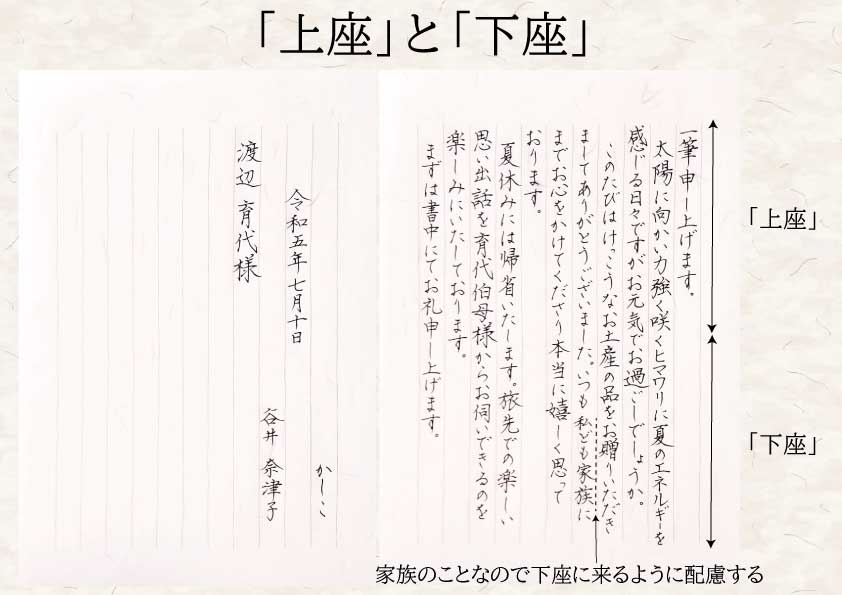 「上座」と「下座」
一筆申し上げます。
太陽に向かい力強く咲くヒマワリに夏のエネルギーを
感じる日々ですがお元気でお過ごしでしょうか。
このたびはけっこうなお土産の品をお贈りいただき
ましてありがとうございました。いつも私ども家族に
までお心をかけてくださり本当に嬉しく思って
おります。
夏休みには帰省いたします。旅先での楽しい
思い出話を育代伯母様からお伺いできるのを
楽しみにいたしております。
まずは書中にてお礼申し上げます。
かしこ
令和五年七月十日
谷井 奈津子
渡辺 育代様
「上座」
「下座」
家族のことなので下座に来るように配慮する